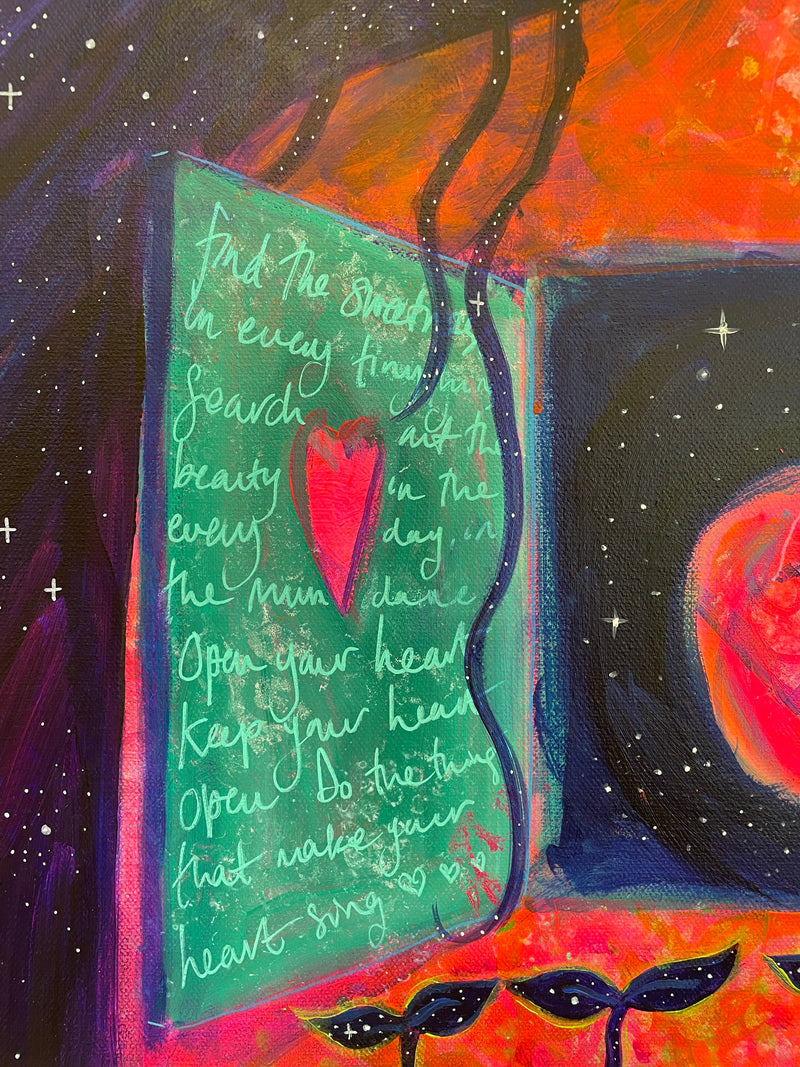 find the
in every tiny
Search out the
beauty in the
every day, in
the mundane
Open your heart
keep your heart
open Do the things
that make your
heart song